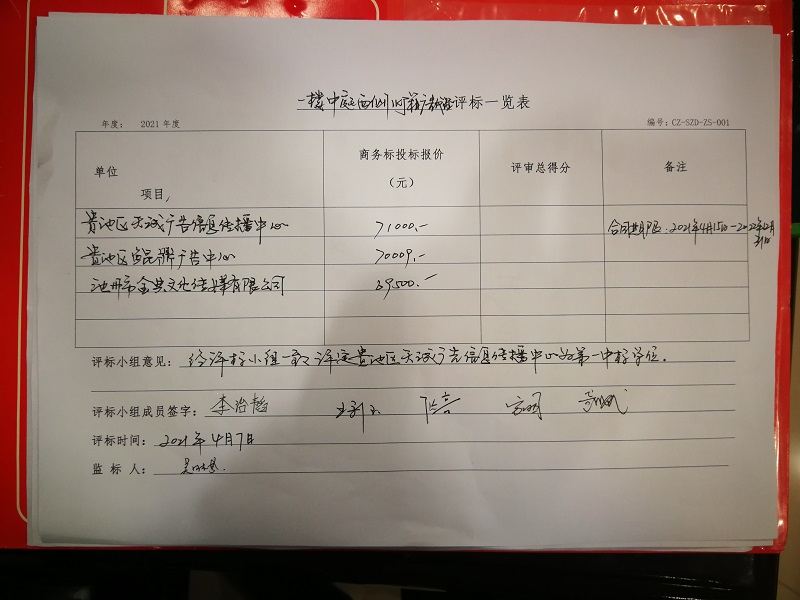 一楼中庭西侧 评标一览表
年度： 2021 年度 编号：CZ-SZD-ZS-001
单位 项目， 商务标投标报价（元） 评审总得分 备注
贵池区天诚广告信息传播中心 71000.- 合同期限：2021年4月15日-2022年12月31日
贵池区 品牌广告中心 70009.-
池州市金典文化传播有限公司 69500.-
评标小组意见： 经评标小组一致评定贵池区天诚广告信息传播中心为第一中标单位。
评标小组成员签字： 李治韬
评标时间： 2021年4月7日
监 标 人：